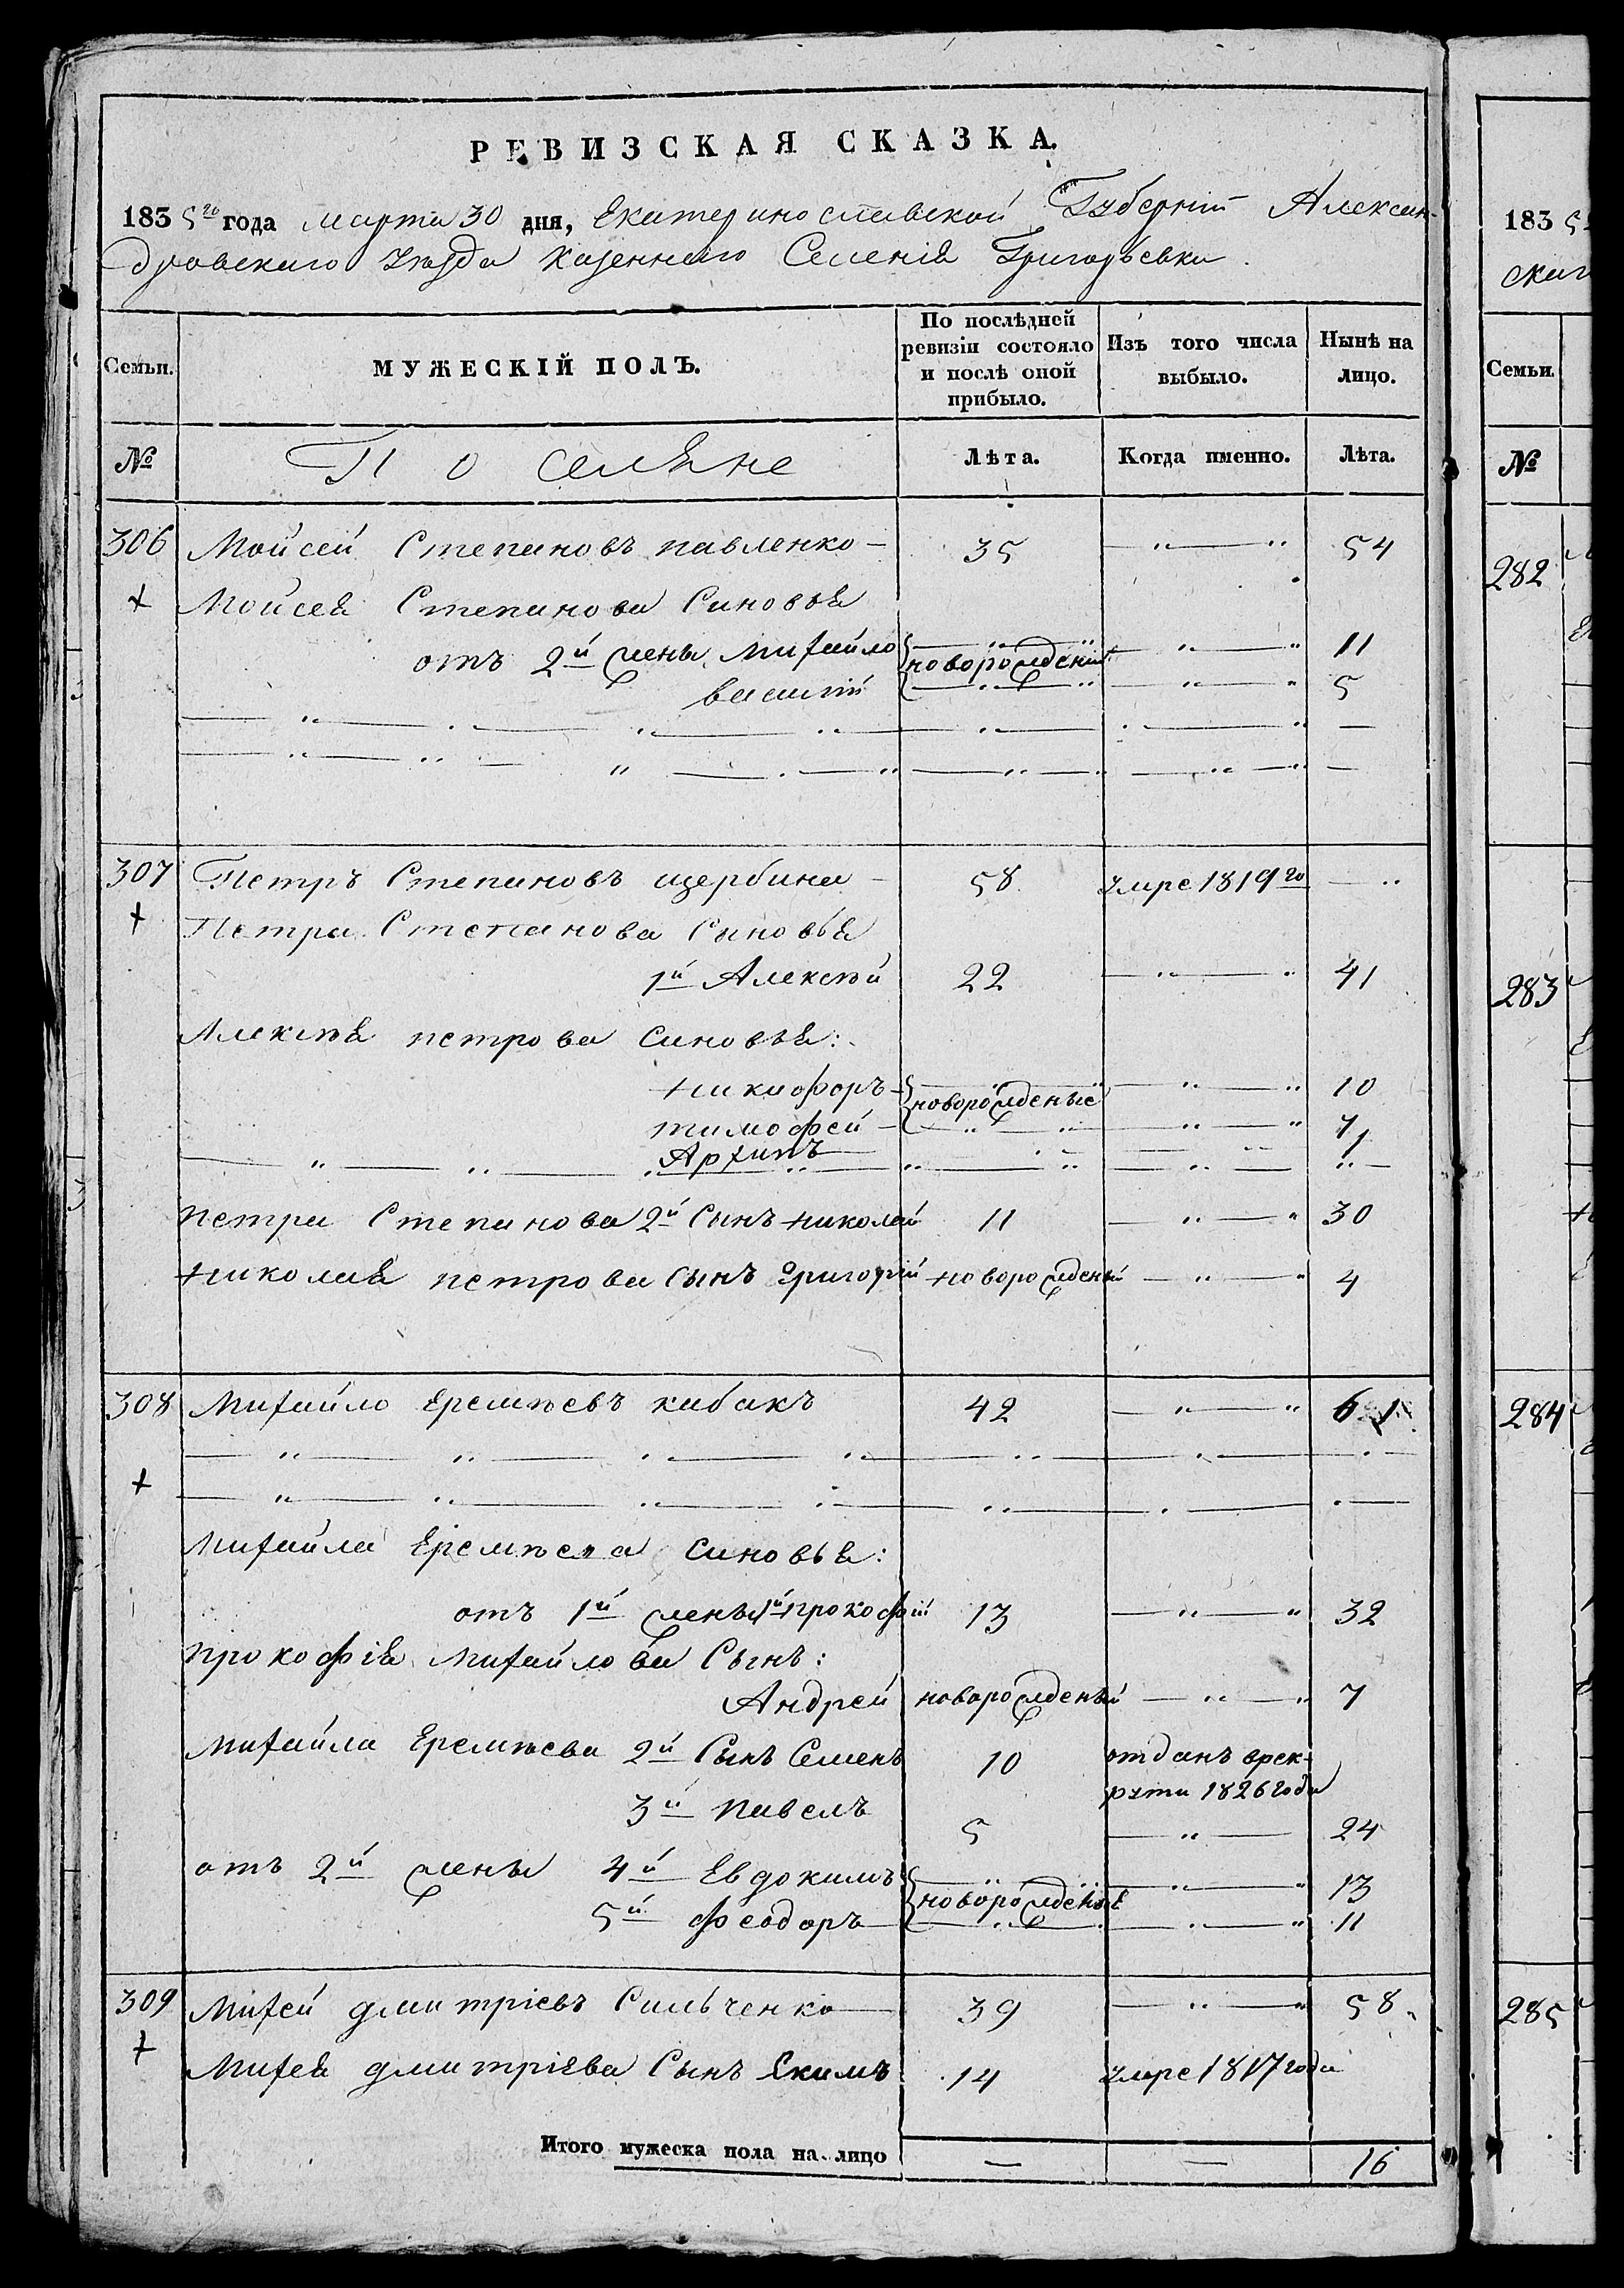 РЕВИЗСКАЯ СКАЗКА.
1835го года марта 30 дня, Екатеринославской Губерніи Алексан-
дровскаго Уѣзда Казеннаго Селенія Григорьевки.
Семьи. МУЖЕСКІЙ ПОЛЪ. По послѣдней ревизіи состояло и послѣ оной прибыло. Изъ того числа выбыло. Нынѣ на лицо.
№ Поселяне Лѣта. Когда именно. Лѣта.
306 Мойсей Степановъ павленко — 35 — " — " 54
+ Мойсея Степанова Синовья
отъ 2й жены Михайло новорожденые — " — " 11
василій — " — " 5
307 Петръ Степановъ щербина — 58 умре 1819го — "
+ Петра Степанова Сыновья
1й Алексѣй 22 — " — " 41
Алексѣя петрова Синовья:
никифоръ новорожденые — " — " 10
тимофей — " — " 7
Архипъ — " — 1
петра Степанова 2й Сынъ николай 11 — " — " 30
николая петрова Сынъ григорій новорожденый — " — " 4
308 Михайло Еремѣевъ кибакъ 42 — " — " 61
+
Михайла Еремѣева Синовья:
отъ 1й жены 1й прокофій 13 — " — " 32
прокофія Михайлова Сынъ:
Андрей новорожденый — " — " 7
Михайла Еремѣева 2й Сынъ Семенъ 10 отданъ врек-
рути 1826 года
3й павелъ 5 — " — 24
отъ 2й жены 4й Евдокимъ новорожденые — " — " 13
5й феодоръ — " — " 11
309 Михей дмитріевъ Сильченко — 39 — " — " 58
+ Михея дмитріева Сынъ Екимъ 14 умре 1817 года
Итого мужеска пола на лицо — — 16
183 5
скаг
Семьи.
№
282
283
284
285